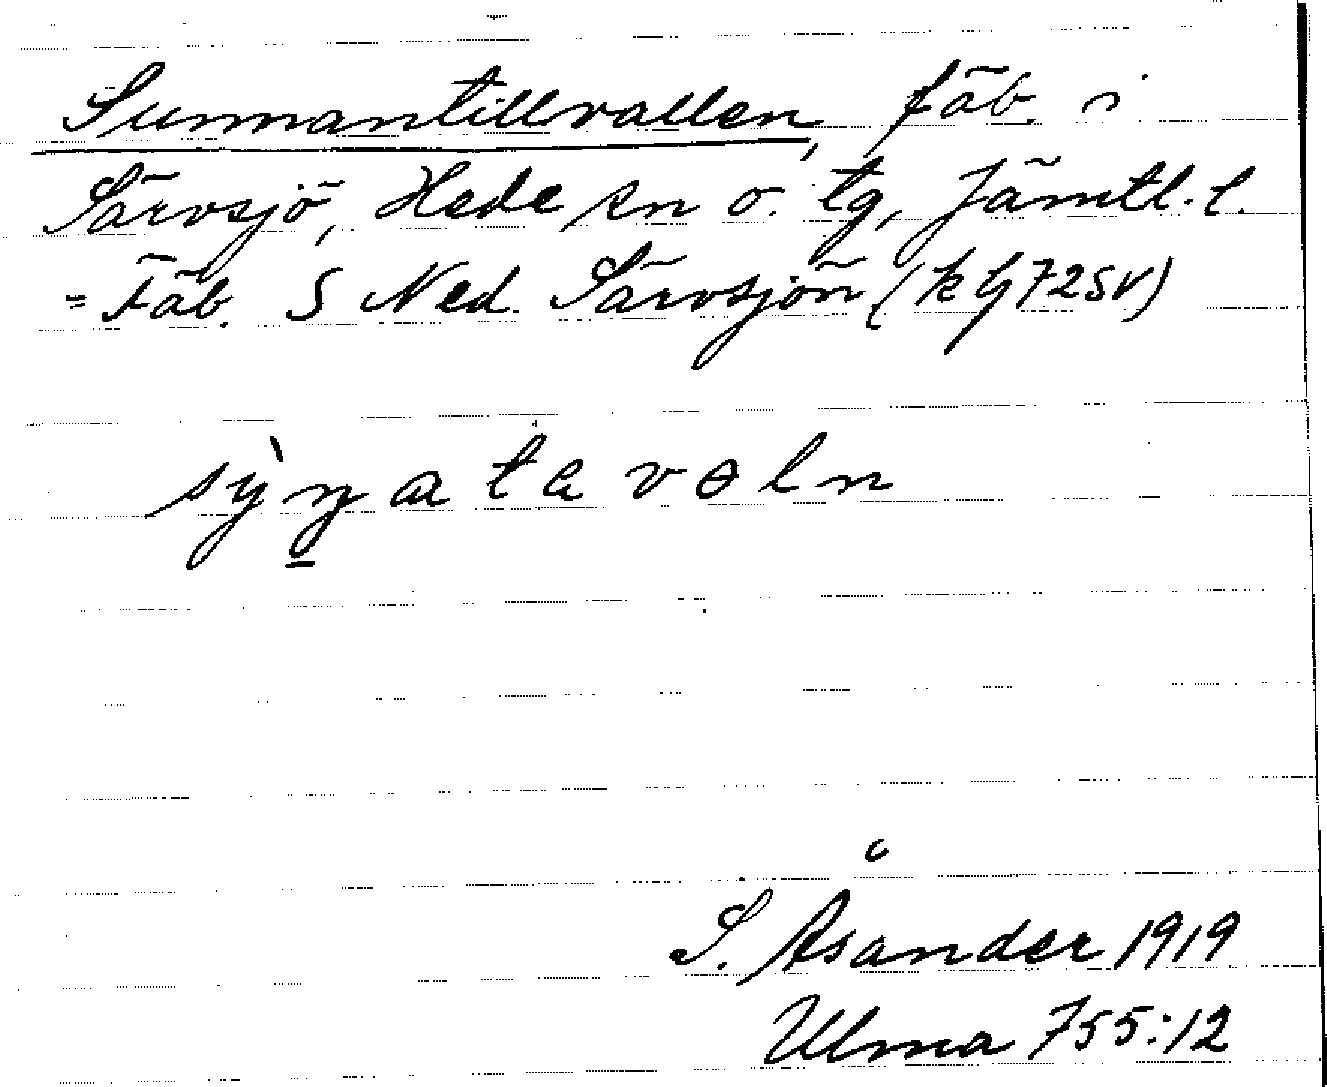 Sunnantillvallen, fäb. i
Särvsjö, Hede sn o. tg, Jämtl. l.
= Fäb. S Ned. Särvsjön (k bj 72SV)
sỳn̲ a ta v ɵ l n
S. Åsander 1919
Ulma 755:12